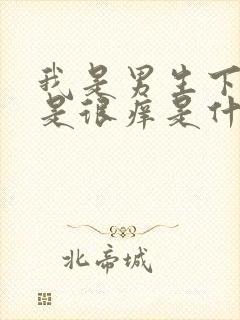 我是男生下
是很痒是什
北帝城